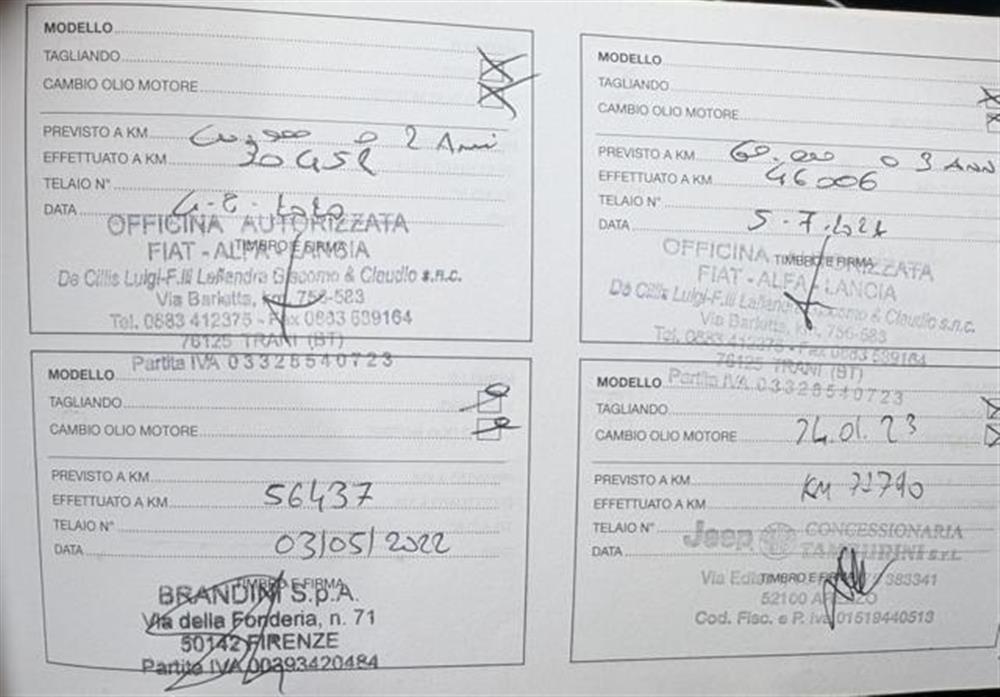 MODELLO
TAGLIANDO
CAMBIO OLIO MOTORE
PREVISTO A KM 2 Anni
EFFETTUATO A KM 30452
TELAIO N°
DATA
TIMBRO E FIRMA
OFFICINA AUTORIZZATA
FIAT - ALFA - LANCIA
De Cillis Luigi-F.lli Lafiandra Giacomo & Claudio s.n.c.
Via Barletta, km. 756-583
Tel. 0883 412375 - Fax 0883 589164
76125 TRANI (BT)
Partita IVA 03328540723
MODELLO
TAGLIANDO
CAMBIO OLIO MOTORE
PREVISTO A KM 60.000 o 3 ANN
EFFETTUATO A KM 46006
TELAIO N°
DATA 5-7-2021
TIMBRO E FIRMA
OFFICINA AUTORIZZATA
FIAT - ALFA - LANCIA
De Cillis Luigi-F.lli Lafiandra Giacomo & Claudio s.n.c.
Via Barletta, km. 756-583
Tel. 0883 412375 - Fax 0883 589164
76125 TRANI (BT)
Partita IVA 03328540723
MODELLO
TAGLIANDO
CAMBIO OLIO MOTORE
PREVISTO A KM
EFFETTUATO A KM 56437
TELAIO N°
DATA 03/05/2022
TIMBRO E FIRMA
BRANDINI S.p.A.
Via della Fonderia, n. 71
50142 FIRENZE
Partita IVA 00393420484
MODELLO
TAGLIANDO
CAMBIO OLIO MOTORE 24.01.23
PREVISTO A KM
EFFETTUATO A KM KM 72790
TELAIO N°
DATA
Jeep CONCESSIONARIA
TAMBURINI s.r.l.
TIMBRO E FIRMA
Via 383341
52100 AREZZO
Cod. Fisc. e P. Iva 01519440513